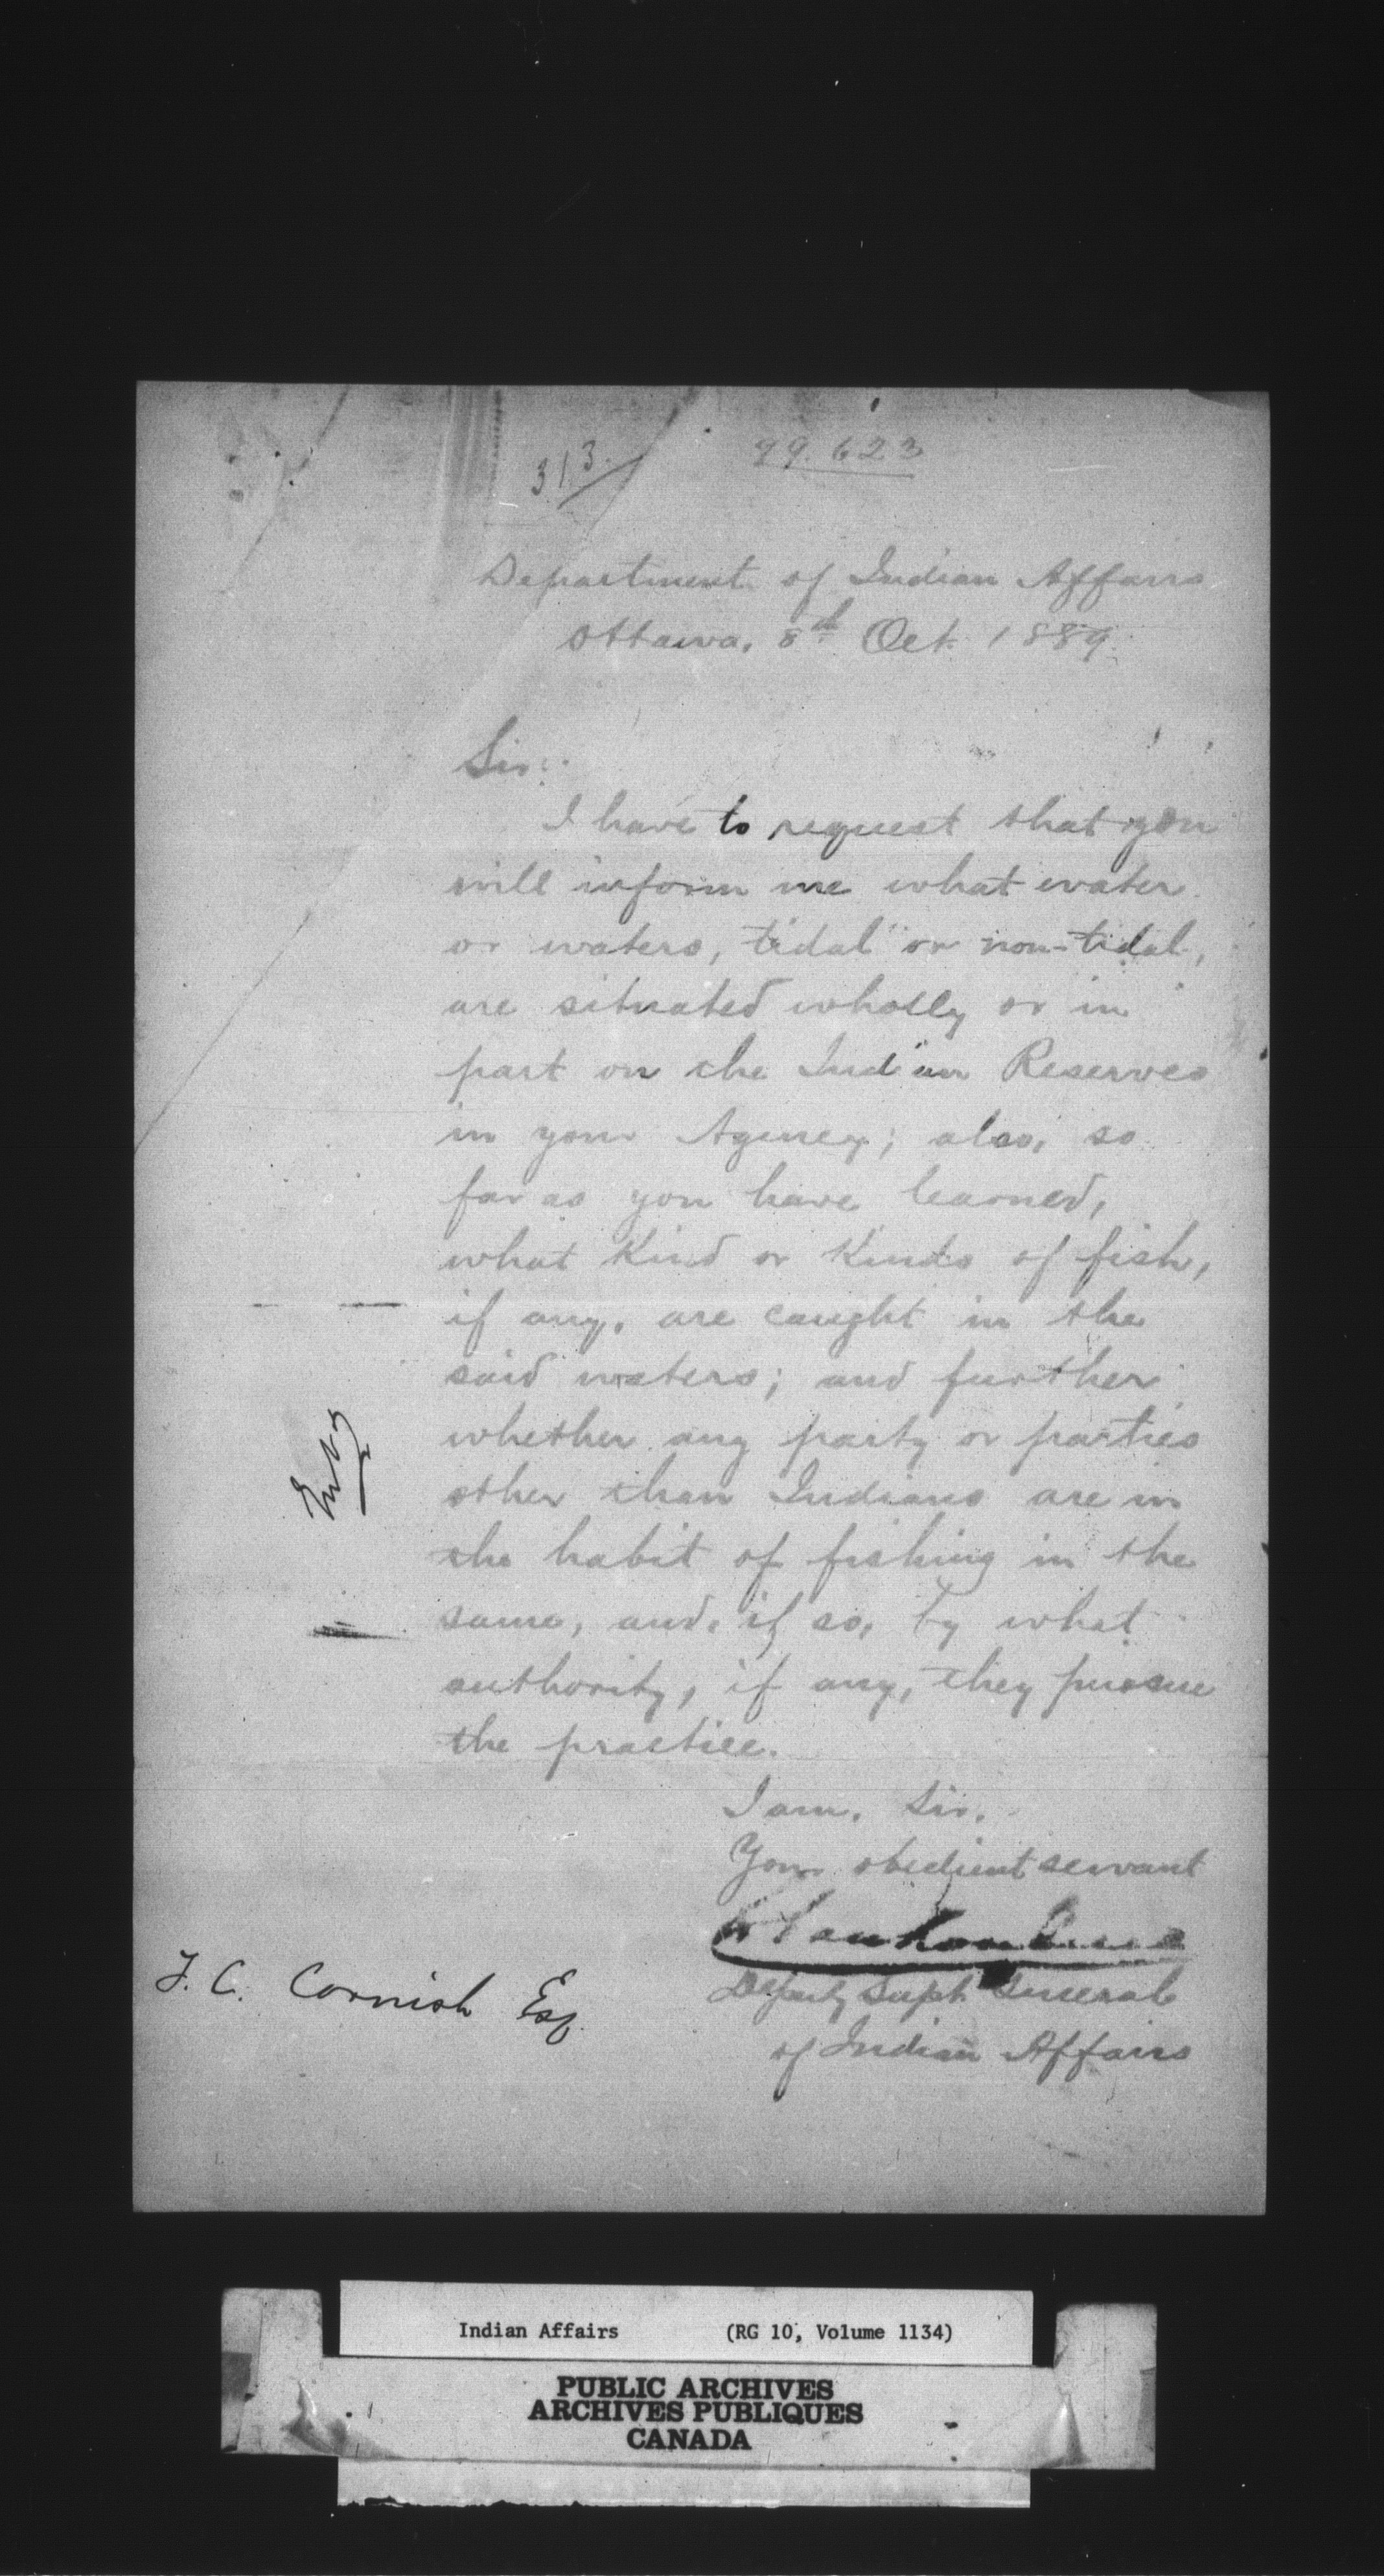 313.
99.623
Department of Indian Affairs
Ottawa, 8th Oct. 1889.
Sir:
I have to request that you
will inform me what water
or waters, tidal or non-tidal,
are situated wholly or in
part on the Indian Reserves
in your Agency; also, so
far as you have learned,
what kind or kinds of fish,
if any, are caught in the
said waters; and further
whether any party or parties
other than Indians are in
the habit of fishing in the
same, and, if so, by what
authority, if any, they pursue
the practice.
I am, Sir,
Your obedient servant
Deputy Supt General
of Indian Affairs
F. C. Cornish Esq.
Indian Affairs (RG 10, Volume 1134)
PUBLIC ARCHIVES
ARCHIVES PUBLIQUES
CANADA